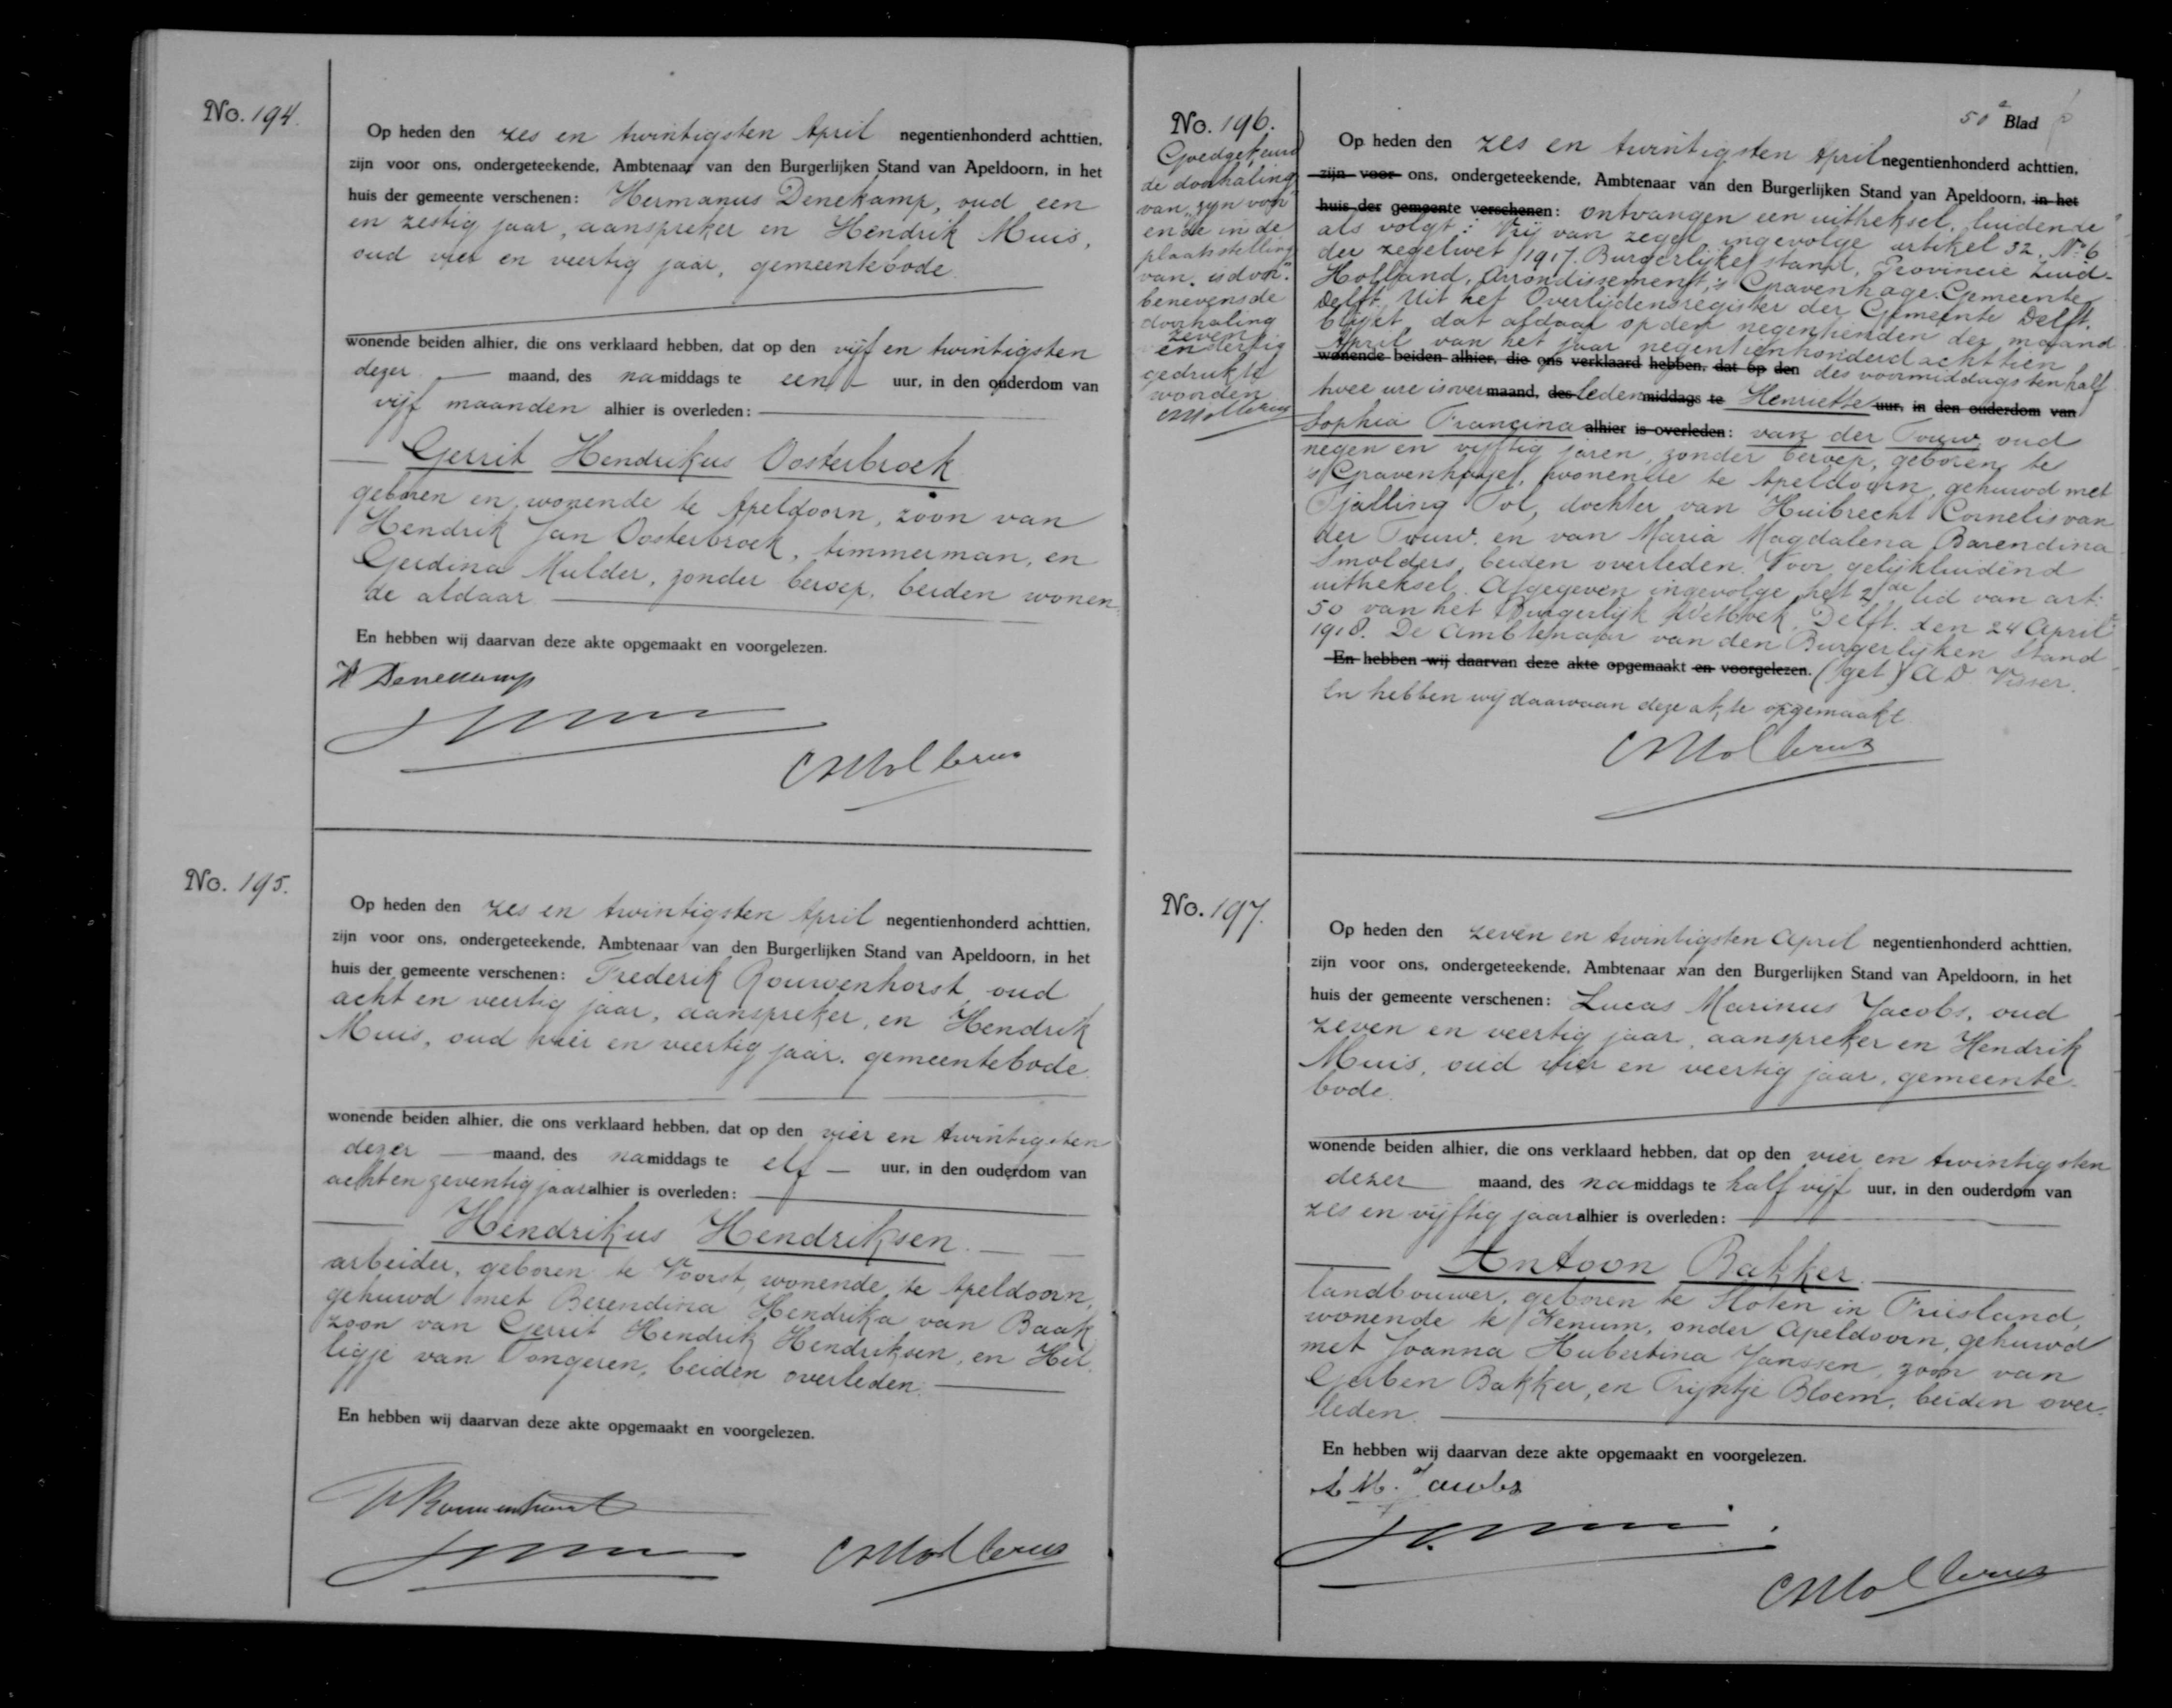 No. 194.
Op heden den zes en twintigsten April negentienhonderd achttien,
zijn voor ons, ondergeteekende, Ambtenaar van den Burgerlijken Stand van Apeldoorn, in het
huis der gemeente verschenen: Hermanus Denekamp, oud een
en zestig jaar, aanspreker en Hendrik Muis,
oud vier en veertig jaar, gemeentebode.
wonende beiden alhier, die ons verklaard hebben, dat op den vijf en twintigsten
dezer — maand, des namiddags te een — uur, in den ouderdom van
vijf maanden alhier is overleden:
Gerrit Hendrikus Oosterbroek
geboren en wonende te Apeldoorn, zoon van
Hendrik Jan Oosterbroek, timmerman, en
Gerdina Mulder, zonder beroep, beiden wonen-
de aldaar
En hebben wij daarvan deze akte opgemaakt en voorgelezen.
H Denekamp
No. 195.
Op heden den zes en twintigsten April negentienhonderd achttien,
zijn voor ons, ondergeteekende, Ambtenaar van den Burgerlijken Stand van Apeldoorn, in het
huis der gemeente verschenen: Frederik Rouwenhorst, oud
acht en veertig jaar, aanspreker, en Hendrik
Muis, oud vier en veertig jaar, gemeentebode.
wonende beiden alhier, die ons verklaard hebben, dat op den vier en twintigsten
dezer — maand, des namiddags te elf — uur, in den ouderdom van
acht en zeventig jaar alhier is overleden:
Hendrikus Hendriksen.
arbeider, geboren te Voorst, wonende te Apeldoorn,
gehuwd met Berendina Hendrika van Baak
zoon van Gerrit Hendrik Hendriksen, en Hil-
ligje van Tongeren, beiden overleden.
En hebben wij daarvan deze akte opgemaakt en voorgelezen.
No. 196.
Goedgekeurd
de doorhaling
van "zyn voor"
en de in de
plaatsstelling
van "is door"
benevens de
doorhaling
zeven
en dertig
gedrukte
woorden
50e Blad
Op heden den zes en twintigsten April negentienhonderd achttien,
zijn voor ons, ondergeteekende, Ambtenaar van den Burgerlijken Stand van Apeldoorn, in het
huis der gemeente verschenen: ontvangen een uittreksel, luidende
als volgt: Vrij van zegel ingevolge artikel 32, No 6
der zegelwet 1917. Burgerlyke stand, Provincie Zuid-
Holland, Arrondissement 's Gravenhage. Gemeente
Delft. Uit het Overlijdensregister der Gemeente Delft,
blijkt, dat aldaar op den negentienden der maand
April van het jaar negentienhonderd achttien,
wonende beiden alhier, die ons verklaard hebben, dat op den des voormiddags ten half
twee ure is over maand, des leden middags te Henriette uur, in den ouderdom van
Sophia Francina alhier is overleden: van der Touw, oud
negen en vijftig jaren, zonder beroep, geboren te
's Gravenhage, wonende te Apeldoorn, gehuwd met
Tjalling Tol, dochter van Huibrecht Cornelis van
der Touw, en van Maria Magdalena Barendina
Smolders, beiden overleden. Voor gelijkluidend
uittreksel. Afgegeven ingevolge het 2de lid van art.
50 van het Burgerlijk Wetboek, Delft, den 24 April
1918. De Ambtenaar van den Burgerlijken Stand
En hebben wij daarvan deze akte opgemaakt en voorgelezen. (get) A D Visser.
En hebben wij daarvan deze akte opgemaakt
No. 197.
Op heden den zeven en twintigsten April negentienhonderd achttien,
zijn voor ons, ondergeteekende, Ambtenaar van den Burgerlijken Stand van Apeldoorn, in het
huis der gemeente verschenen: Lucas Marinus Jacobs, oud
zeven en veertig jaar, aanspreker en Hendrik
Muis, oud vier en veertig jaar, gemeente-
bode.
wonende beiden alhier, die ons verklaard hebben, dat op den vier en twintigsten
dezer maand, des namiddags te half vijf uur, in den ouderdom van
zes en vijftig jaar alhier is overleden:
Antoon Bakker.
landbouwer, geboren te Sloten in Friesland,
wonende te Wenum, onder Apeldoorn, gehuwd
met Joanna Hubertina Janssen, zoon van
Gerben Bakker, en Trijntje Bloem, beiden over-
leden.
En hebben wij daarvan deze akte opgemaakt en voorgelezen.
L. M. Jacobs